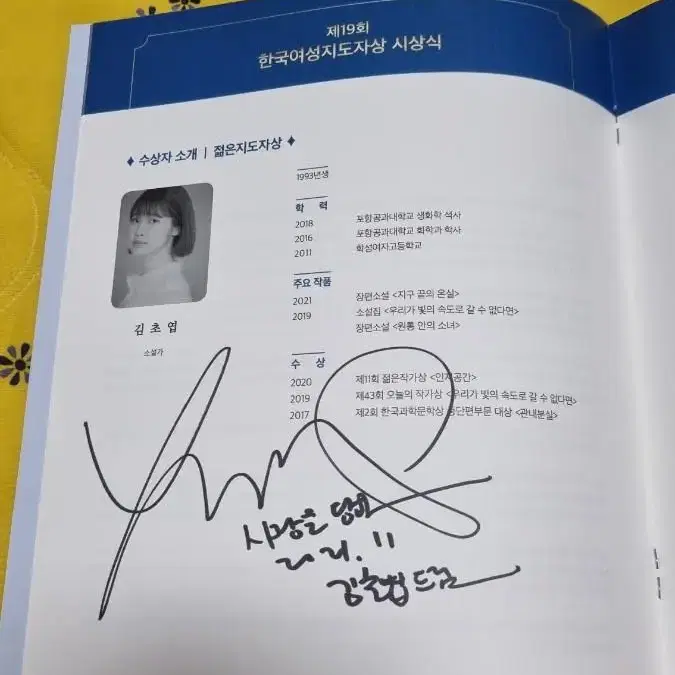 제19회
한국여성지도자상 시상식
♦ 수상자 소개 | 젊은지도자상 ♦
김 초 엽
소설가
1993년생
학 력
2018 포항공과대학교 생화학 석사
2016 포항공과대학교 화학과 학사
2011 학성여자고등학교
주요 작품
2021 장편소설 <지구 끝의 온실>
2019 소설집 <우리가 빛의 속도로 갈 수 없다면>
장편소설 <원통 안의 소녀>
수 상
2020 제11회 젊은작가상 <인지공간>
2019 제43회 오늘의 작가상 <우리가 빛의 속도로 갈 수 없다면>
2017 제2회 한국과학문학상 중단편부문 대상 <관내분실>
2021. 11
김초엽 드림